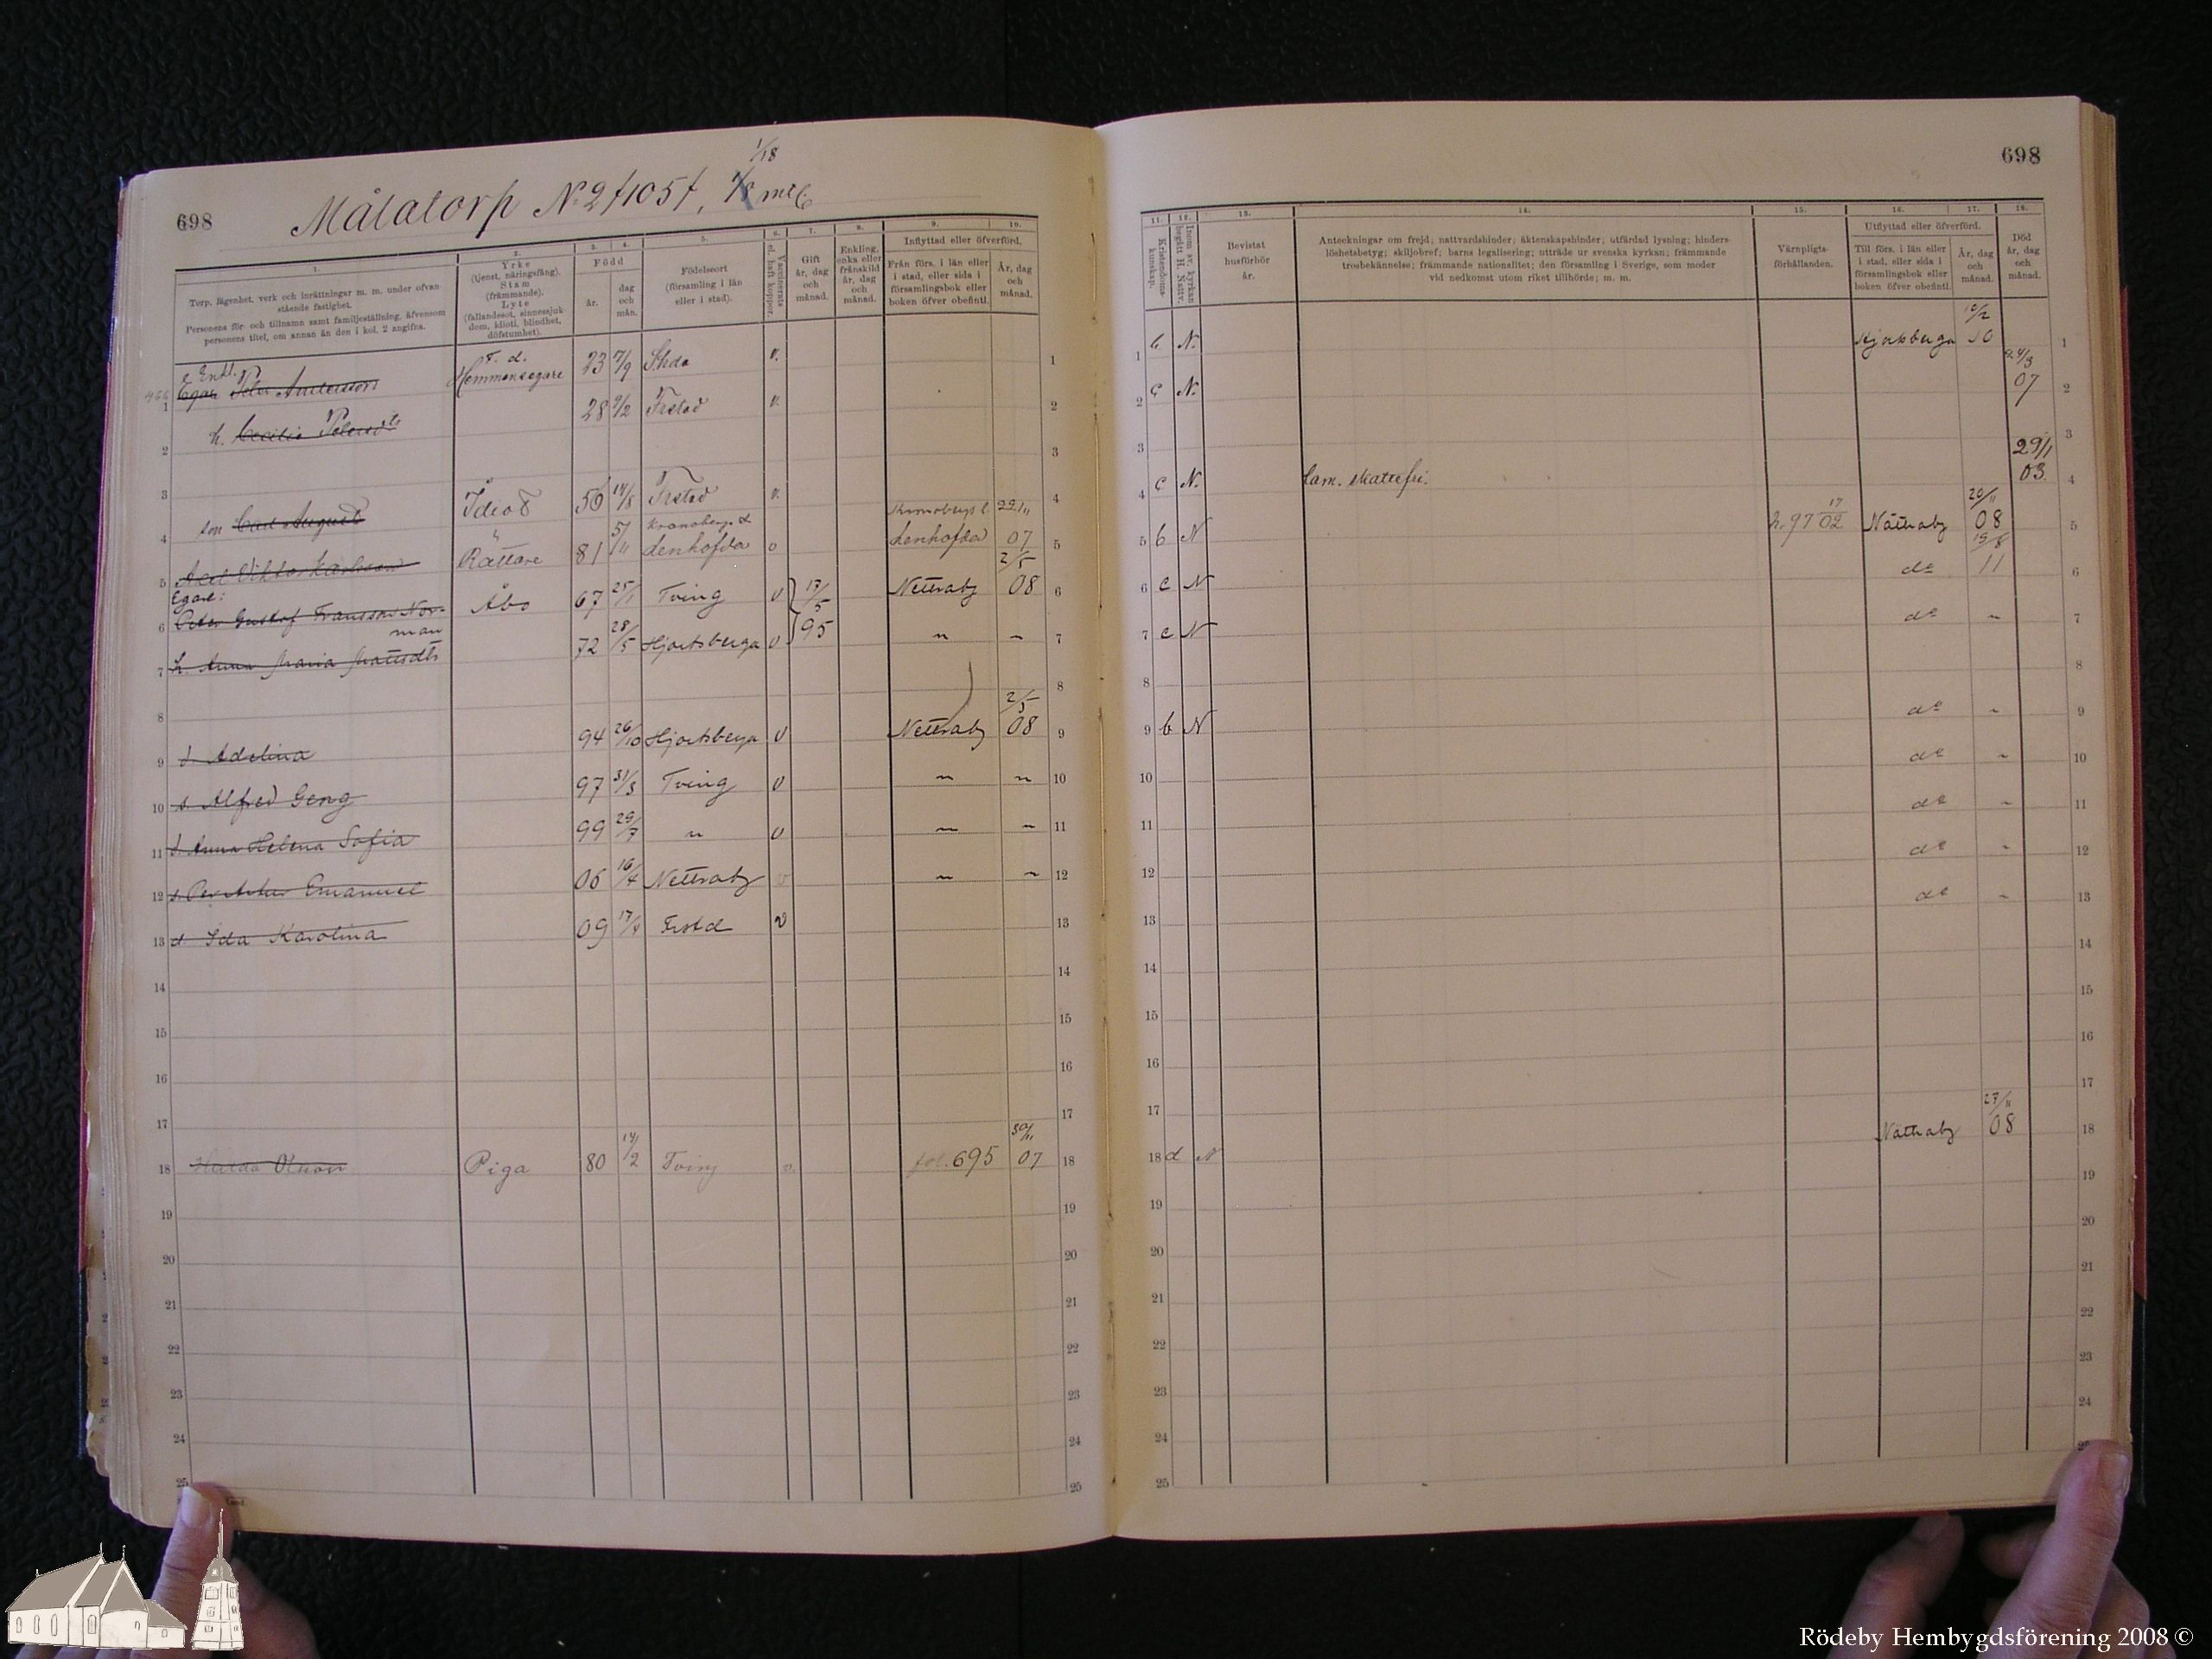 698
Målatorp N:2 f 105 f, mtl
1/18
1. 2. 3. 4. 5. 6. 7. 8. 9. 10.
Torp, lägenhet, verk och inrättningar m. m. under ofvan
stående fastighet.
Personens för- och tillnamn samt familjeställning, äfvensom
personens titel, om annan än den i kol. 2 angifna.
Yrke
(tjenst, näringsfång).
Stam
(främmande).
Lyte
(fallandesot, sinnessjuk-
dom, idioti, blindhet,
döfstumhet).
Född
år.
dag
och
mån.
Födelseort
(församling i län
eller i stad).
Vaccinerats
el. haft koppor.
Gift
år, dag
och
månad.
Enkling,
enka eller
frånskild
år, dag
och
månad.
Inflyttad eller öfverförd.
Från förs. i län eller
i stad, eller sida i
församlingsbok eller
boken öfver obefintl.
År, dag
och
månad.
1 Enkl. Egar. Peter Andersson F. d. Hemmansegare 23 7/9 v. 1
2 h. Cecilia Petersdtr 28 9/2 Frstad v. 2
3 3
4 son Carl August Idiot 50 14/8 Frstad v. 4
5 Axel Viktor Karlsson Rättare 81 5/11 Kronobergs l Lenhofda v Kronobergs l. Lenhofda 22/11 07 5
Egare:
6 Peter Gustaf Fransson Nor-
man Åbo 67 25/1 Tving v 17/5 95 Nettraby 2/5 08 6
7 h. Anna Maria Mattsdtr 72 28/5 Hjortsberga v " " 7
8 8
9 d. Adelina 94 26/10 Hjortsberga v Nettraby 2/5 08 9
10 s. Alfred Georg 97 31/3 Tving v " " 10
11 d. Anna Helena Sofia 99 29/7 " v " " 11
12 s. Per Artur Emanuel 06 16/4 Nettraby v " " 12
13 d. Ida Karolina 09 Frstd v 13
14 14
15 15
16 16
17 17
18 Hulda Olsson Piga 80 14/2 Tving v. fol. 695 30/11 07 18
19 19
20 20
21 21
22 22
23 23
24 24
25 25
698
11. 12. 13. 14. 15. 16. 17. 18.
Kristendoms-
kunskap.
Inom sv. kyrkan
begått H. Nattv.
Bevistat
husförhör
år.
Anteckningar om frejd; nattvardshinder; äktenskapshinder; utfärdad lysning; hinders-
löshetsbetyg; skiljobref; barns legalisering; utträde ur svenska kyrkan; främmande
trosbekännelse; främmande nationalitet; den församling i Sverige, som moder
vid nedkomst utom riket tillhörde; m. m.
Värnpligts-
förhållanden.
Utflyttad eller öfverförd.
Till förs. i län eller
i stad, eller sida i
församlingsbok eller
boken öfver obefintl.
År, dag
och
månad.
Död
år, dag
och
månad.
1 b. N. Hjortsberga 10 1
2 c N. 24/3 07 2
3 3
4 c N. lam. skattefri. 29/1 03. 4
5 b N 97 17/02 Nättraby 20/11 08 5
6 c N do 19/8 11 6
7 c N do " 7
8 8
9 b N do " 9
10 do " 10
11 do " 11
12 do " 12
13 do " 13
14 14
15 15
16 16
17 17
18 d N Nättraby 27/11 08 18
19 19
20 20
21 21
22 22
23 23
24 24
25
Rödeby Hembygdsförening 2008 ©